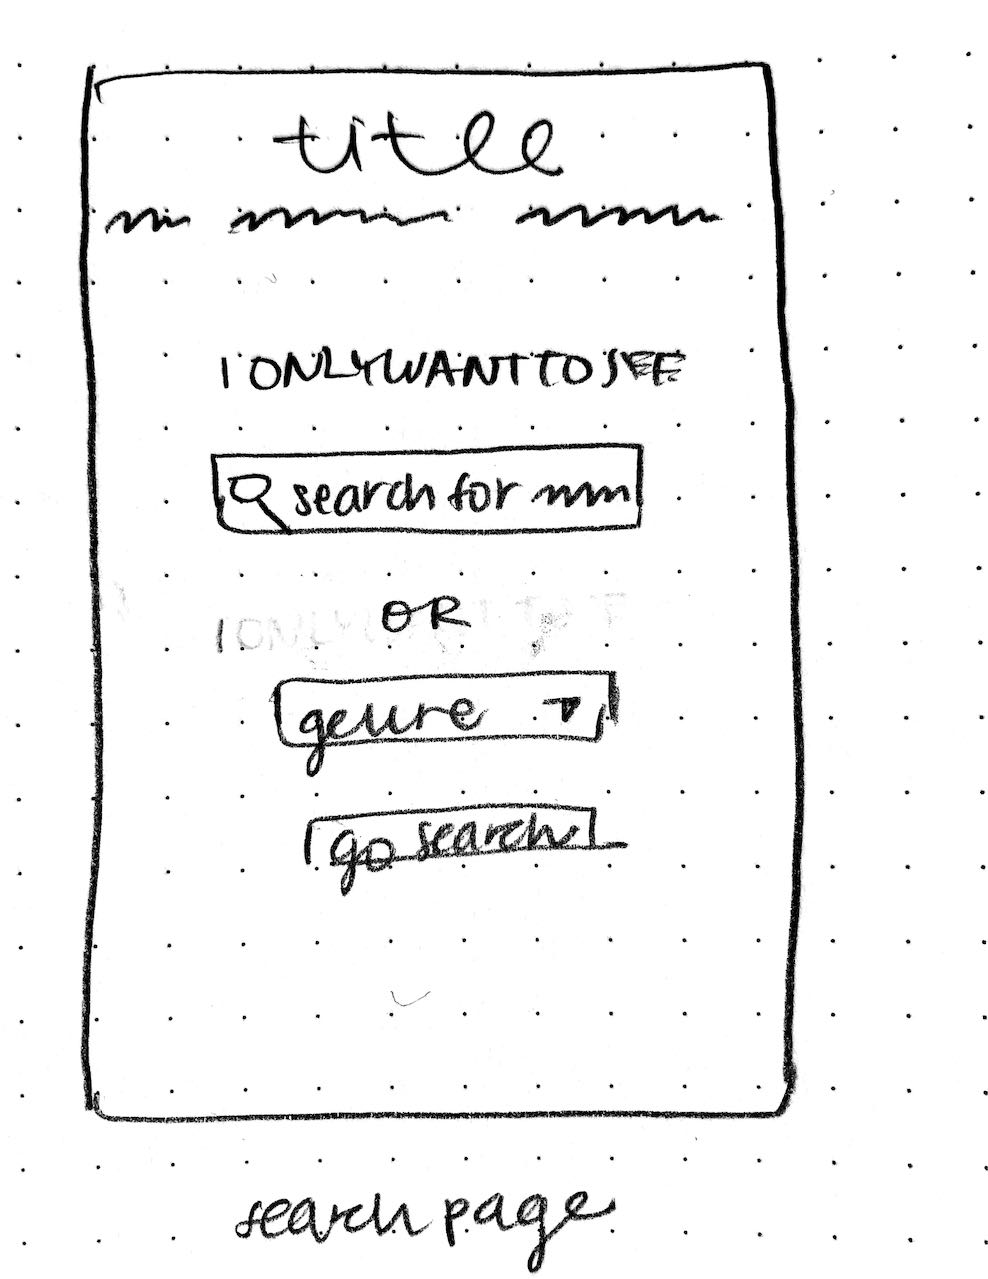 title
I ONLY WANT TO SEE
search for
OR
genre
go search
search page